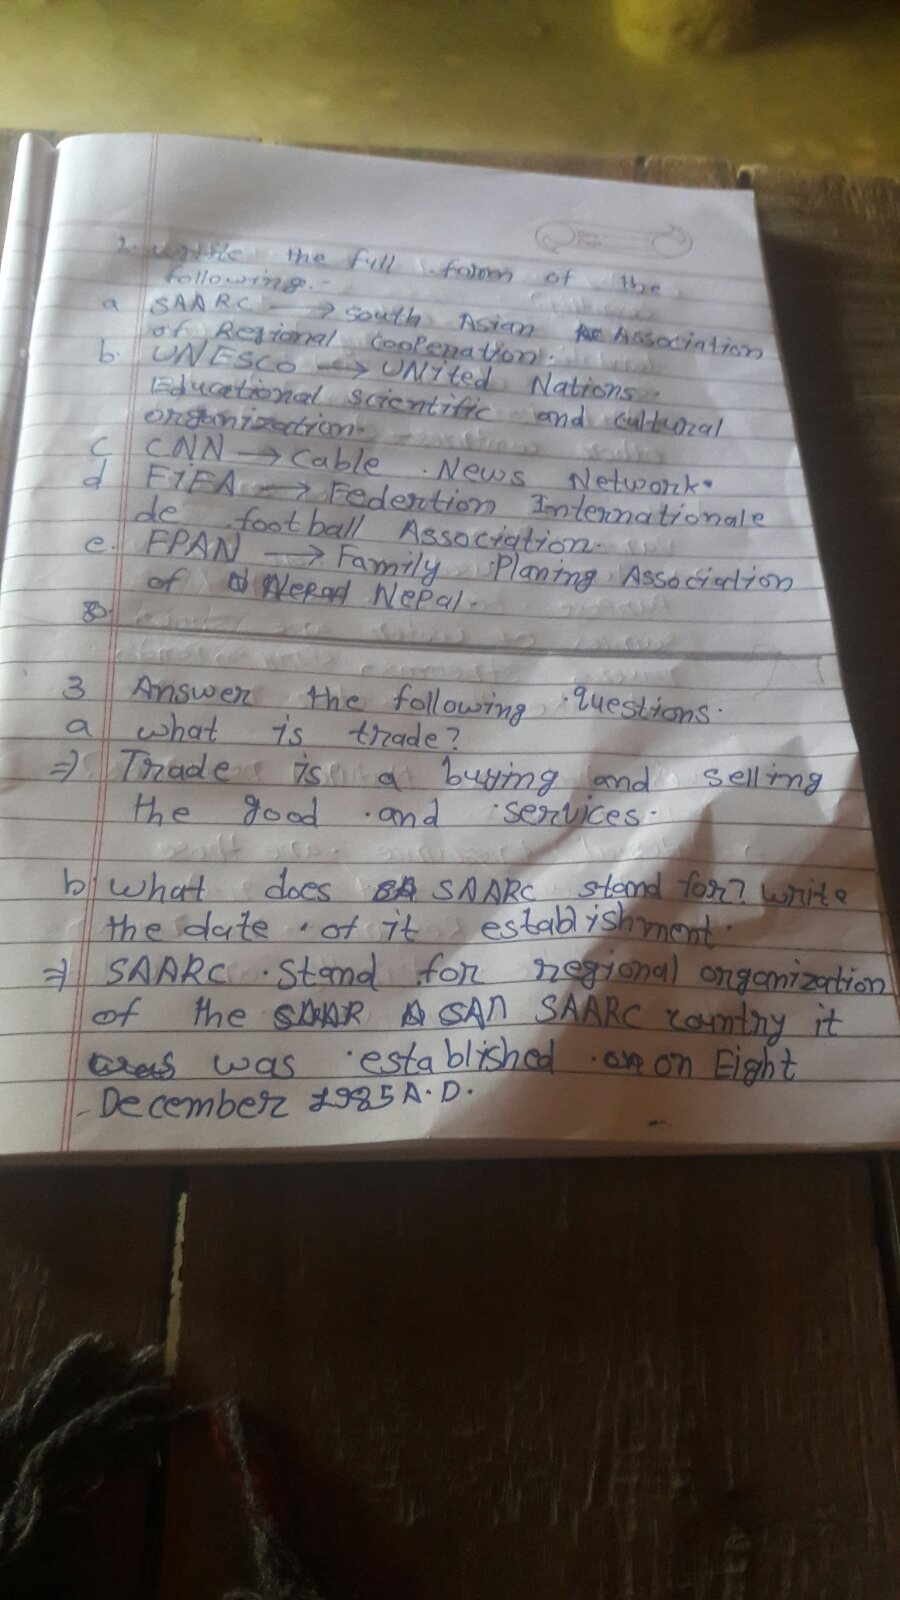 2. write the full form of the
following.
a SAARC → south Asian Association
of Regional cooperation.
b. UNESCO → UNited Nations
Educational scientific and cultural
organization.
c CNN → cable News Network.
d FIFA → Federtion Internationale
de football Association.
e. FPAN → Family Planing Association
of Nepal.
3 Answer the following questions.
a what is trade?
⇒ Trade is a buying and selling
the good and services.
b what does SAARC stand for? write
the date of it establishment.
⇒ SAARC stand for regional organization
of the SAARC country it
was established on Eight
December 1985 A.D.